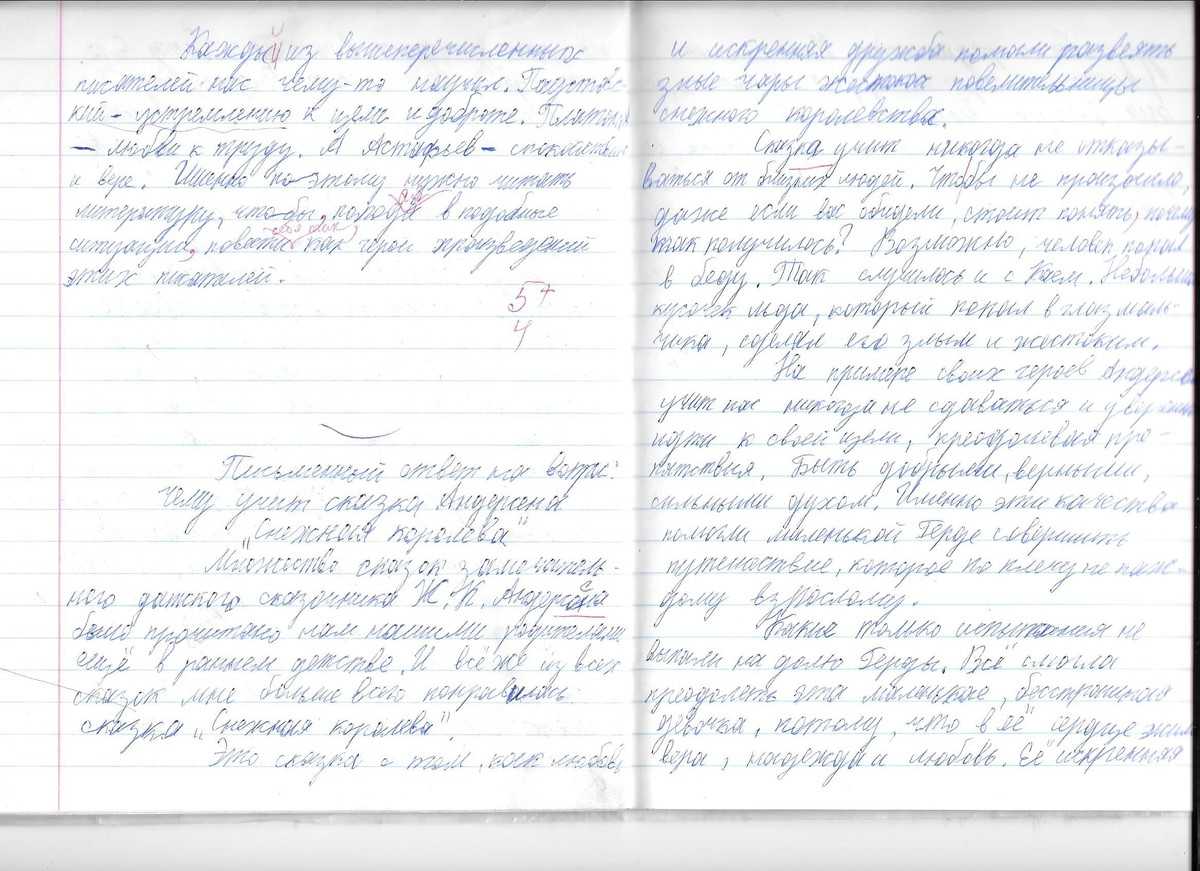 Каждый из вышеперечисленных
писателей нас чему-то научил. Паустовс-
кий – устремлению к цели и доброте. Платонов
– любви к труду. А Астафьев – спокойствию
и вере. Именно по-этому нужно читать
литературу, что-бы, попадая в подобные
ситуации, повести себя так, как герои произведений
этих писателей.
5+
4
Письменный ответ на вопрос:
Чему учит сказка Андерсена
„Снежная королева"
Множество сказок замечатель-
ного датского сказочника Х. К. Андерсена
было прочитано нам нашими родителями
ещё в раннем детстве. И всё же из всех
сказок мне больше всего понравилась
сказка „Снежная королева".
Это сказка о том, как любовь
и искренняя дружба помогли развеять
злые чары жестокой повелительницы
снежного королевства.
Сказка учит никогда не отказы-
ваться от близких людей. Чтобы не произошло,
даже если вас обидели, стоит понять, почему
так получилось? Возможно, человек попал
в беду. Так случилось и с Каем. Небольшой
кусочек льда, который попал в глаз маль-
чика, сделал его злым и жестоким.
На примере своих героев Андерсен
учит нас никогда не сдаваться и уверенно
идти к своей цели, преодолевая пре-
пятствия. Быть добрыми, верными,
сильными духом. Именно эти качества
помогли маленькой Герде совершить
путешествие, которое по плечу не каж-
дому взрослому.
Какие только испытания не
выпали на долю Герды. Всё смогла
преодолеть эта маленькая, бесстрашная
девочка, потому, что в её сердце жили
вера, надежда и любовь. Её искренняя